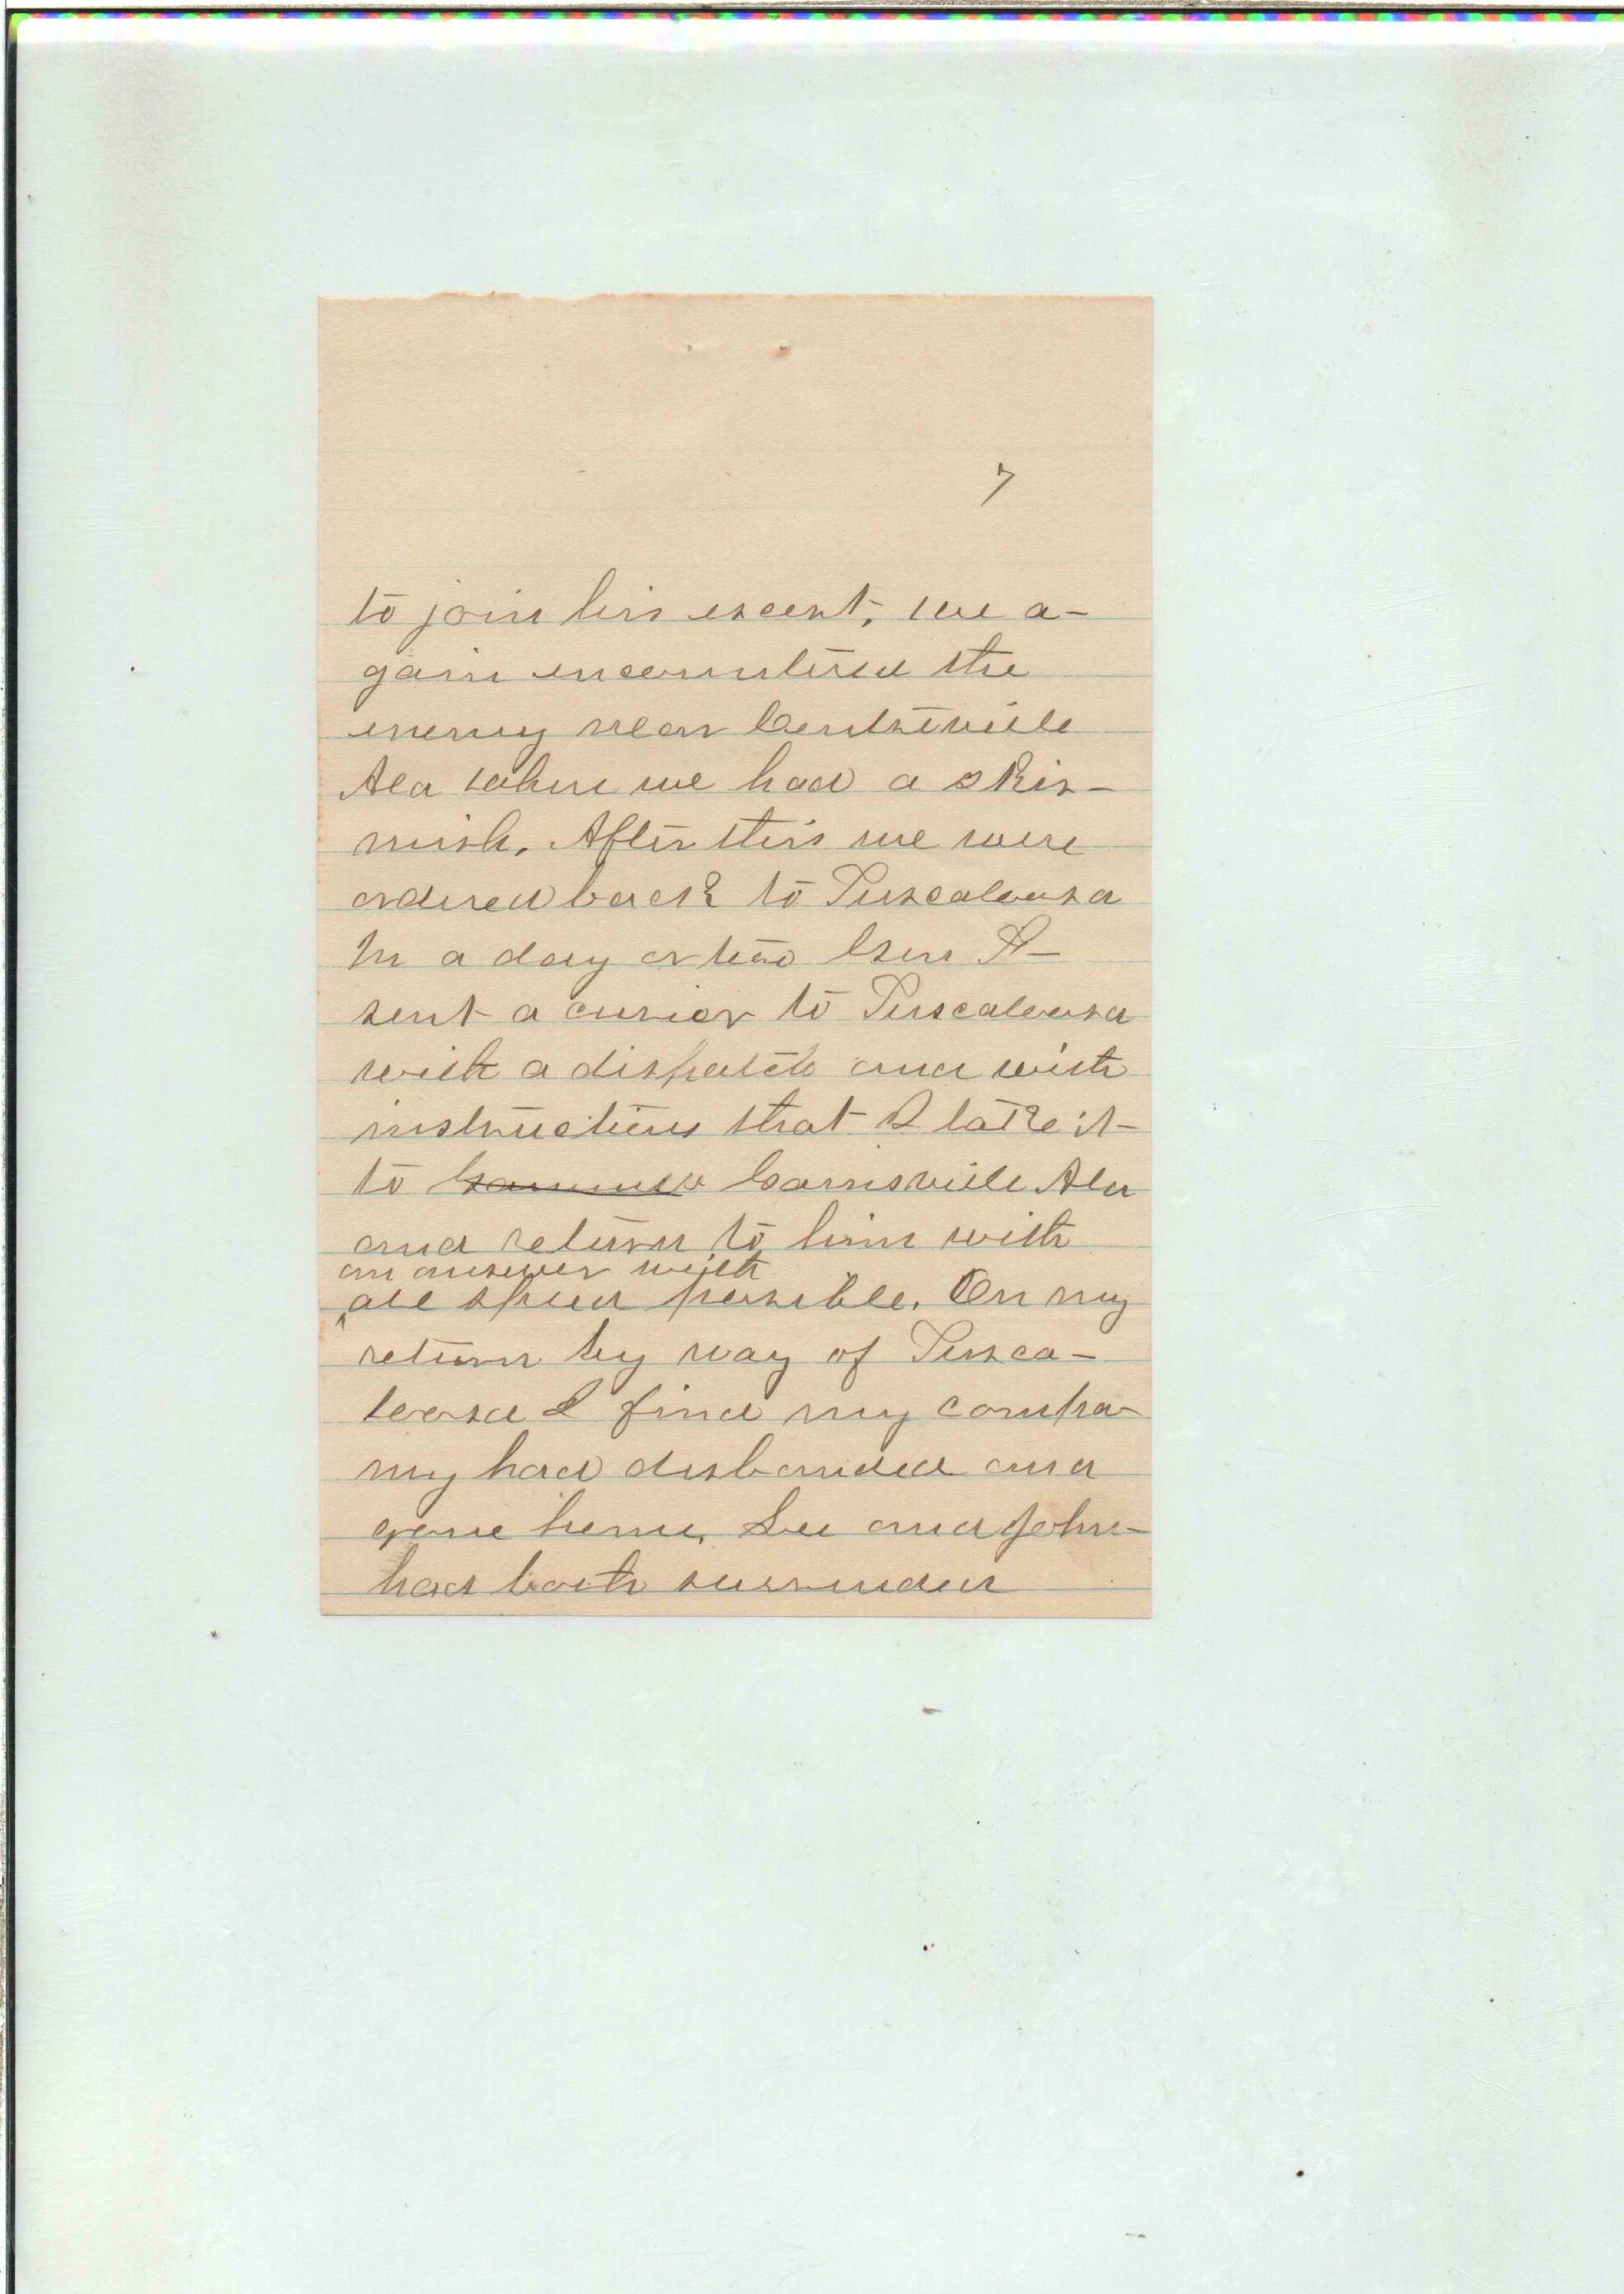 7
to join his escort, we a-
gain encountered the
enemy near Centreville
Ala where we had a skir-
mish. After this we were
ordered back to Tuscaloosa
In a day or two Gen
sent a curior to Tuscaloosa
with a dispatch and with
instructions that I take it
to Gainsville Ala
and return to him with
an answer with
all speed possible. On my
return by way of Tusca-
loosa I find my compa-
ny had disbanded and
gone home. Lee and John-
had both surrender